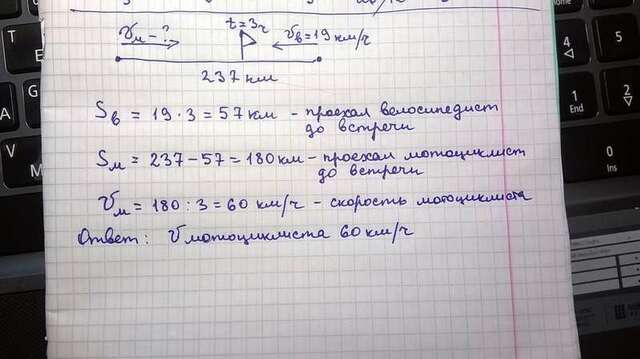 t=3ч
Vм - ? Vв=19 км/ч
237 км
Sв = 19 · 3 = 57 км - проехал велосипедист
до встречи
Sм = 237 - 57 = 180 км - проехал мотоциклист
до встречи
Vм = 180 : 3 = 60 км/ч - скорость мотоциклиста
Ответ: V мотоциклиста 60 км/ч
T
G
A
V
M
4
1
End
2
0
Ins